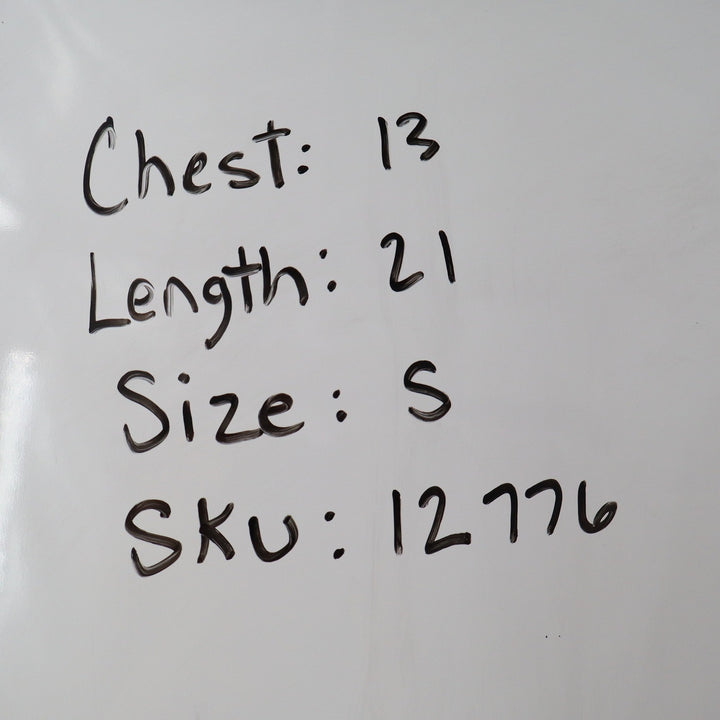 Chest: 13
Length: 21
Size: S
SKU: 12776